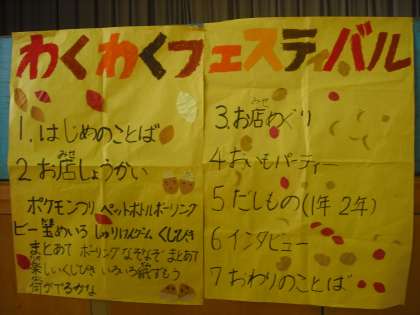 わくわくフェスティバル
1.はじめのことば
2お店しょうかい
ポケモンつり ペットボトルボーリング
ビー玉めいろ しゅりけんゲーム くじびき
まとあて ボーリング なぞなぞ まとあて
楽しいくじびき いろいろ紙ずもう
何がでるかな
3.お店めぐり
4おいもパーティー
5だしもの(1年 2年)
6インタビュー
7おわりのことば